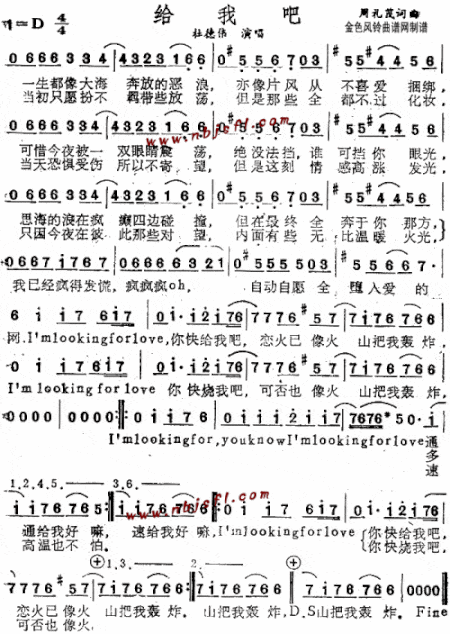 给我吧
1=D 4/4
杜德伟 演唱
周礼茂词曲
金色风铃曲谱网制谱
0 666 4 3 34 | 4323 1 66 | 0 #5 55 6 7 03 | #5 5 #4 4
一生都像大海 奔放的恶浪, 亦像片风从 不喜爱 捆绑,
当初只愿扮不 羁带些放荡, 但是那些全 都不过 化妆,
0 666 4 3 34 | 4323 1 66 | 0 #5 55 6 7 03 | #5 5 #4 4
www.nbjsfl.com
可惜今夜被一 双眼睛震 荡, 绝没法挡,谁 可挡你 眼光,
当天恐惧受伤 所以不寄 望, 但是这刻情 感高涨 发光,
0 666 4 3 34 | 4323 1 66 | 0 #5 55 6 7 03 | #5 5 #4 4
思海的浪在疯 癫四边碰 撞, 但在最终全 奔于你 那方,
只因今夜在彼 此那些对 望, 内面有些无 比温暖 火光,
0667 i767 | 666 6 321 | 0 55 5503 | #5 566 7·
我已经疯得发慌,疯疯疯oh, 自动自愿全 堕入爱 的
6 i 0i7 6i7 | 0i· i2i76 | 7776 #57 | 7i76 766
网.I'mlookingforlove,你快给我吧,恋火已像火 山把我轰炸,
0 i 0i7 6i7 | 0i· i2i76 | 7776 #57 | 7i76 766
I'm looking for love 你快烧我吧,可否也像火 山把我轰炸,
0000 | 0000 :‖: 0 i i76 | 0i i i2 i i7 | 7676 5 0· i
I'mlookingfor,youknowI'mlookingforlove通
多
速
1,2,4,5. 3,6.
ii76 765 :‖ ii76 766 :‖: 0i 07 6i7 | 0i· i2i76
www.nbjsfl.com
通给我好 嘛, 速给我好 嘛,I'mlookingforlove 你快给我吧,
高温也不 怕. 你快烧我吧,
1,3. 2.
7776 #57 | 7i76 766 :‖ 7i76 766 :‖ 7i76 766 | 0000 ‖
恋火已像火 山把我轰 炸. 山把我轰 炸,D.S山把我轰炸. Fine
可否也像火